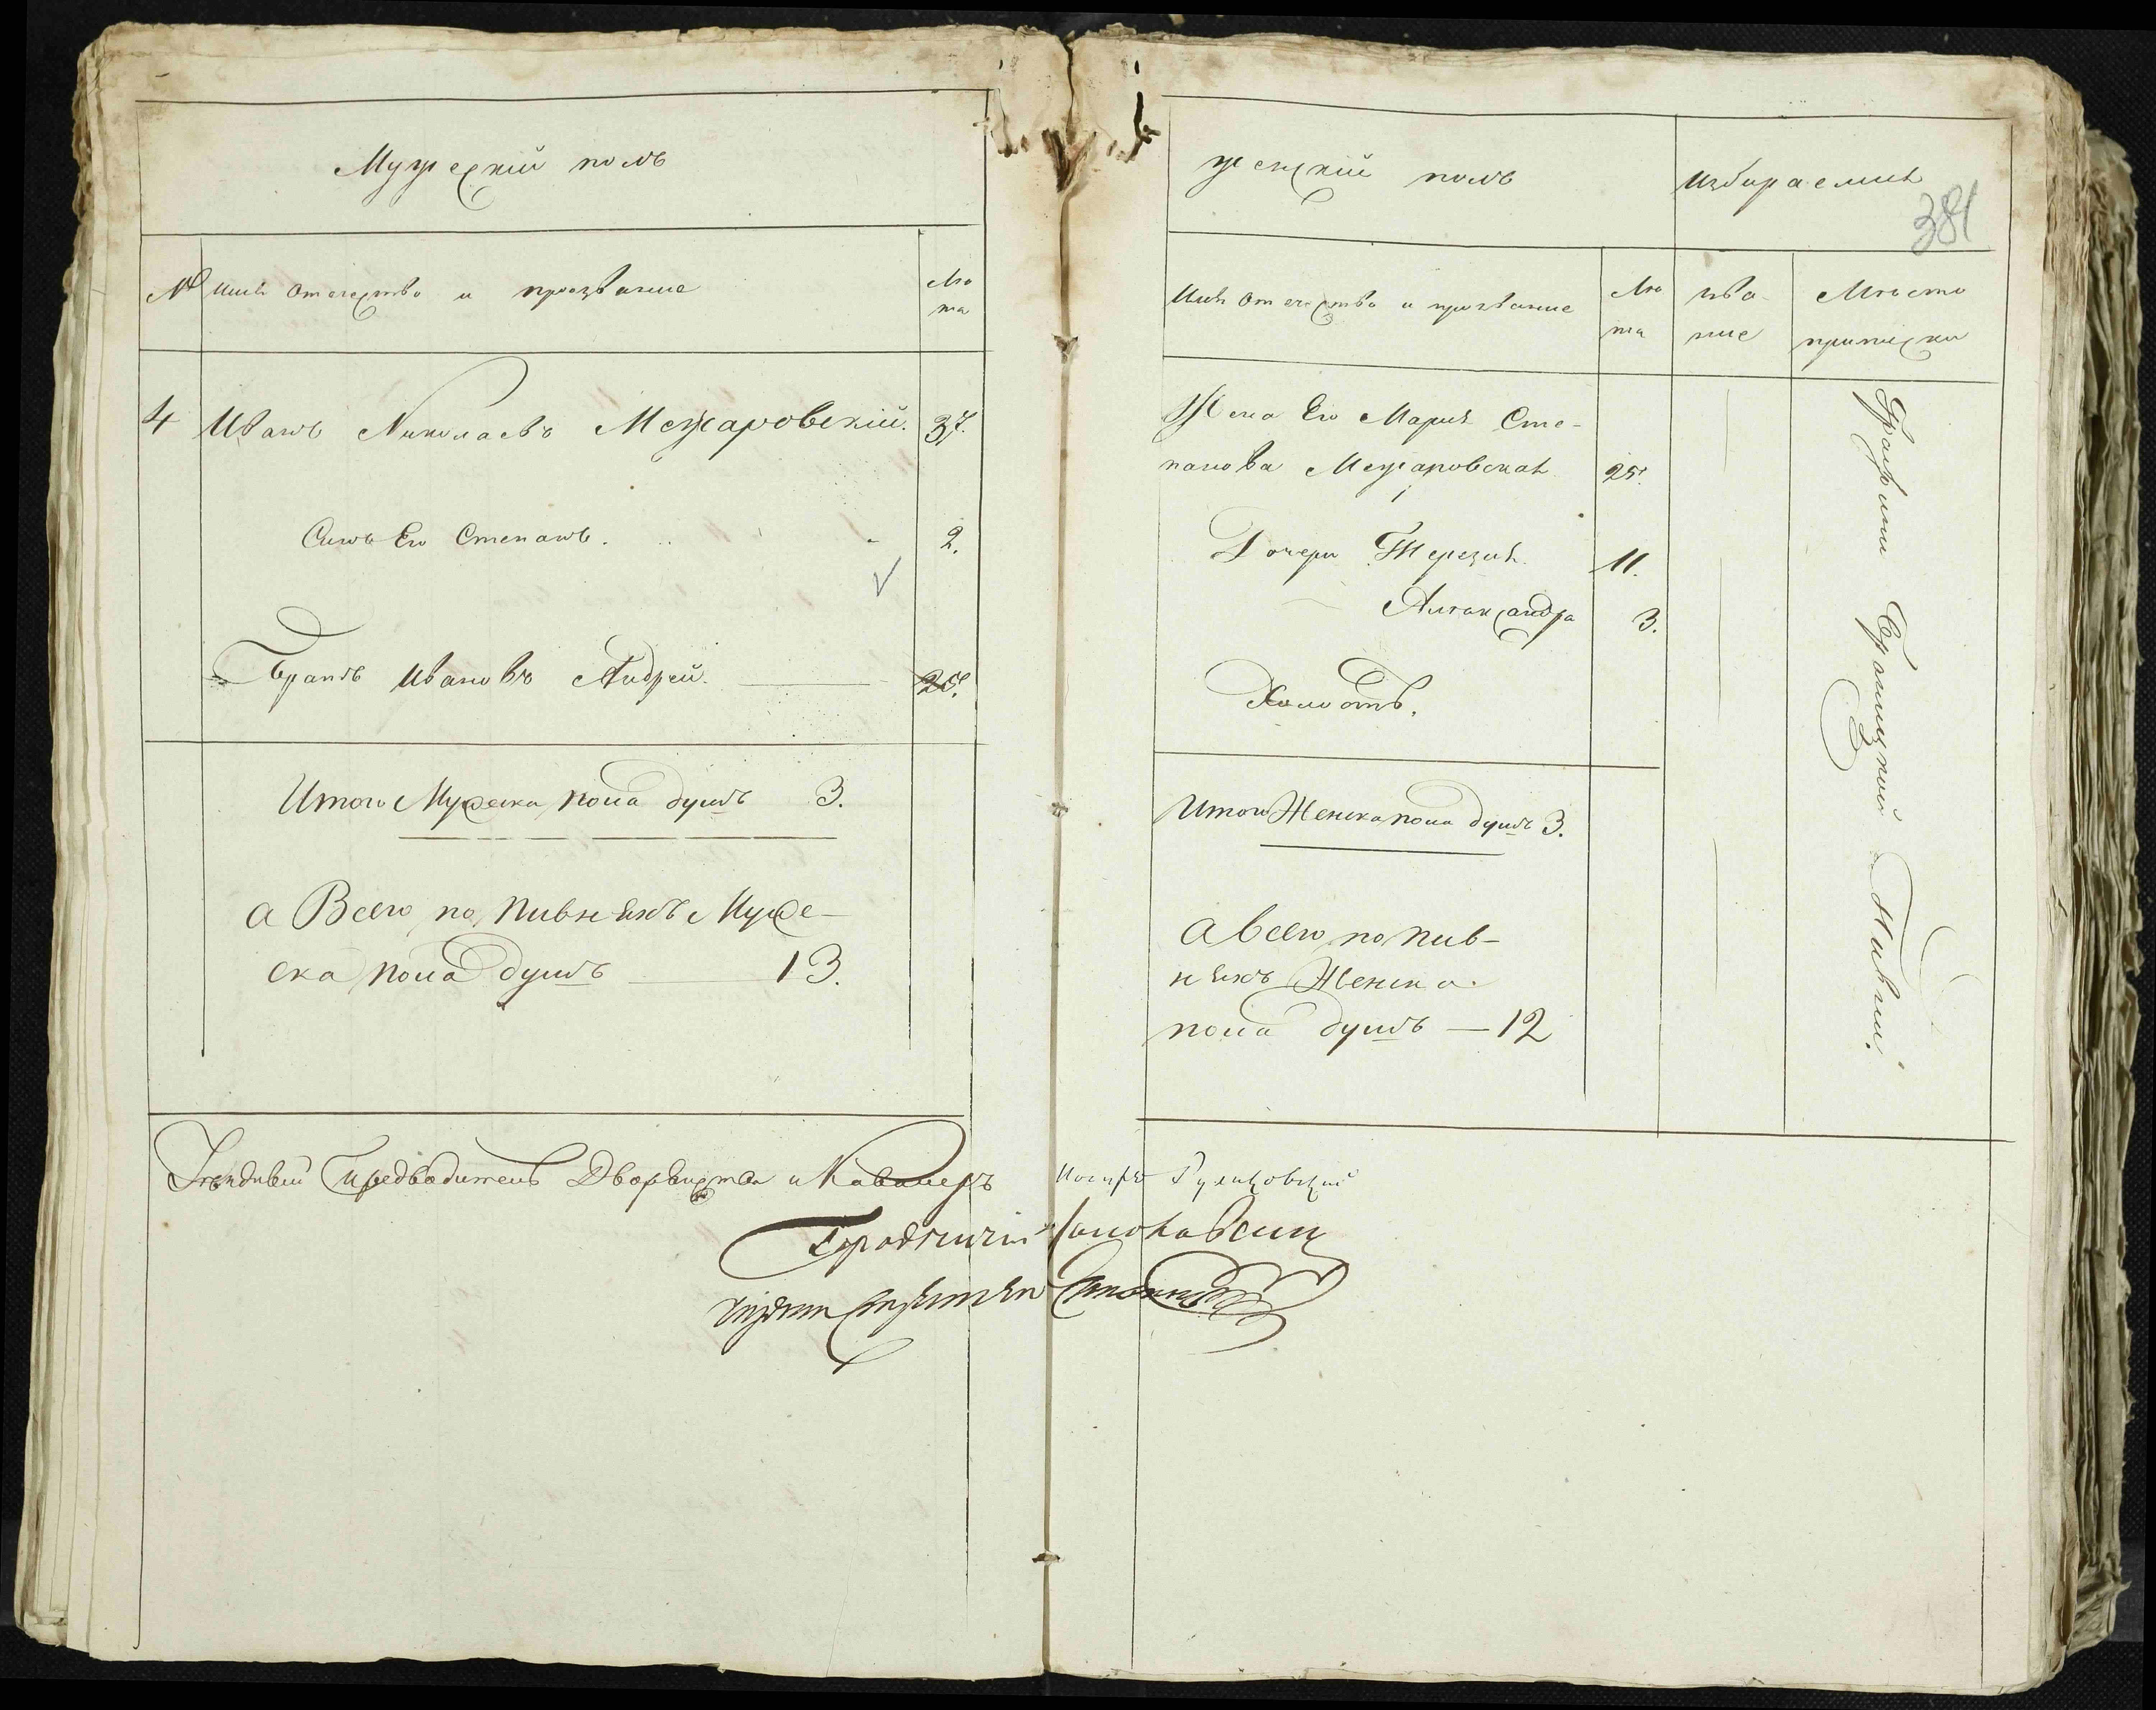 Мужескій полъ
№ Имя Отечество и прозвание
Лѣ
та
4 Иванъ Николаевъ Межаровскій. 37.
Сынъ Его Степанъ. 2.
Братъ Ивановъ Андрей. 25.
Итого Мужеска пола душъ 3.
а Всего по Пивнямъ Муже-
ска пола душъ 13.
женскій полъ
Избираемия
381
Имя Отечество и прозвание
Лѣ
та
зва-
ние
Мѣсто
приписки
Жена Его Мария Сте-
панова Межаровская 25.
Дочери Терезия 11.
Александра 3.
Холостъ.
Итого Женска пола душъ 3.
а Всего по Пив-
нямъ Женска
пола душъ — 12
Графини Браницкой Пивни.
Уездный Предводитель Дворянства и Кавалеръ Руликовский
Городничій